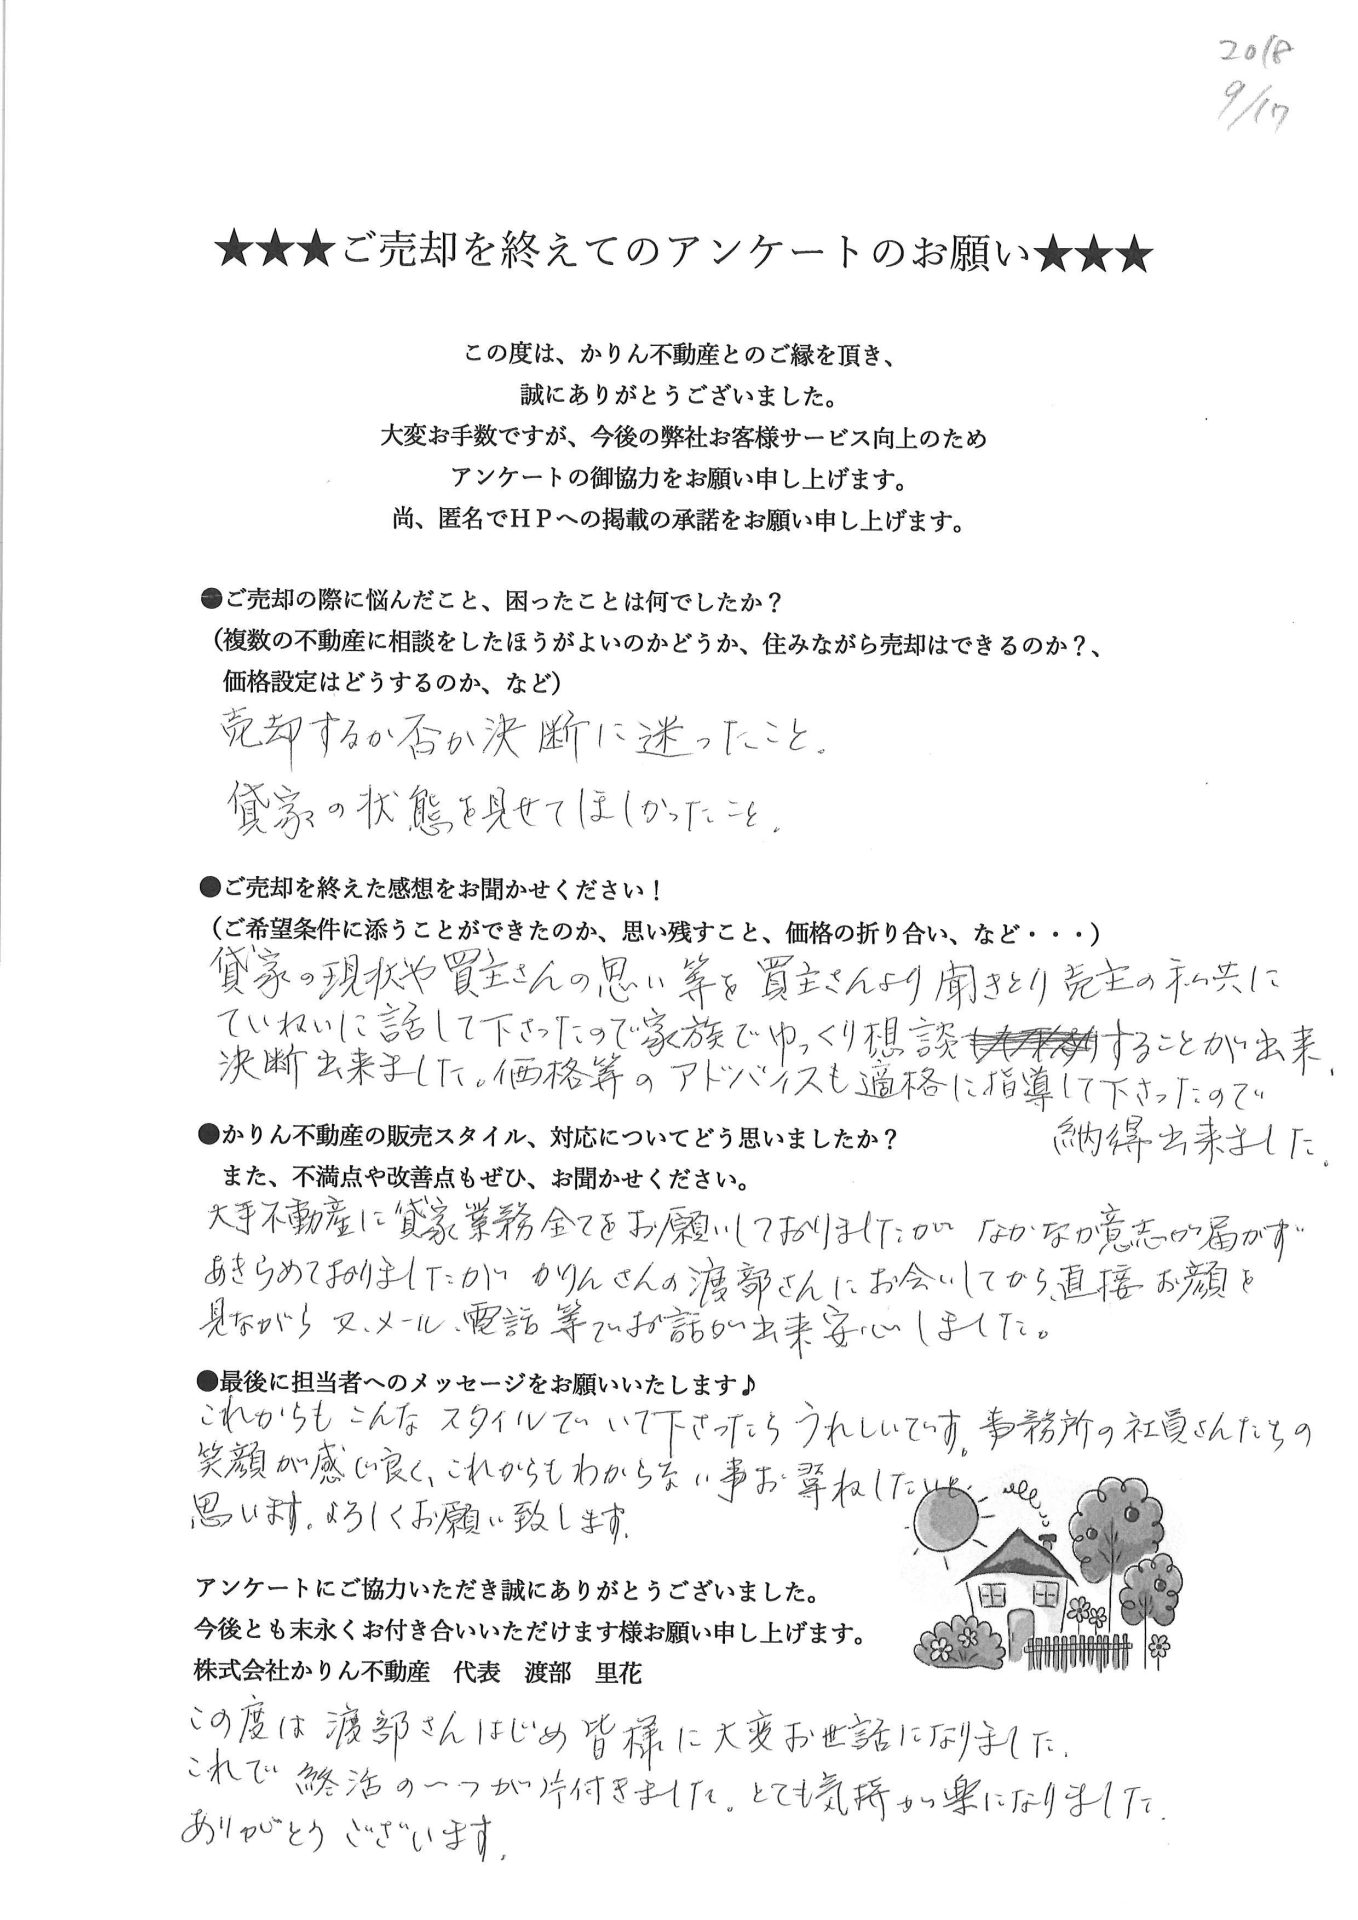 2018
9/17
★★★ご売却を終えてのアンケートのお願い★★★
この度は、かりん不動産とのご縁を頂き、
誠にありがとうございました。
大変お手数ですが、今後の弊社お客様サービス向上のため
アンケートの御協力をお願い申し上げます。
尚、匿名でＨＰへの掲載の承諾をお願い申し上げます。
●ご売却の際に悩んだこと、困ったことは何でしたか？
（複数の不動産に相談をしたほうがよいのかどうか、住みながら売却はできるのか？、
価格設定はどうするのか、など）
売却するか否か決断に迷ったこと。
貸家の状態を見せてほしかったこと。
●ご売却を終えた感想をお聞かせください！
（ご希望条件に添うことができたのか、思い残すこと、価格の折り合い、など・・・）
貸家の現状や買主さんの思い等を買主さんより聞きとり売主の私共に
ていねいに話して下さったので家族でゆっくり想談することが出来、
決断出来ました。価格等のアドバイスも適格に指導して下さったので
納得出来ました。
●かりん不動産の販売スタイル、対応についてどう思いましたか？
また、不満点や改善点もぜひ、お聞かせください。
大手不動産に貸家業務全てをお願いしておりましたが なかなか意志が届かず
あきらめておりましたが かりんさんの渡部さんにお会いしてから、直接お顔を
見ながら 又、メール、電話等でお話が出来安心しました。
●最後に担当者へのメッセージをお願いいたします♪
これからもこんなスタイルでいて下さったらうれしいです。事務所の社員さんたちの
笑顔が感じ良く、これからもわからない事お尋ねしたいと
思います。よろしくお願い致します。
アンケートにご協力いただき誠にありがとうございました。
今後とも末永くお付き合いいただけます様お願い申し上げます。
株式会社かりん不動産　代表　渡部　里花
この度は渡部さんはじめ皆様に大変お世話になりました。
これで終活の一つが片付きました。とても気持が楽になりました。
ありがとうございます。